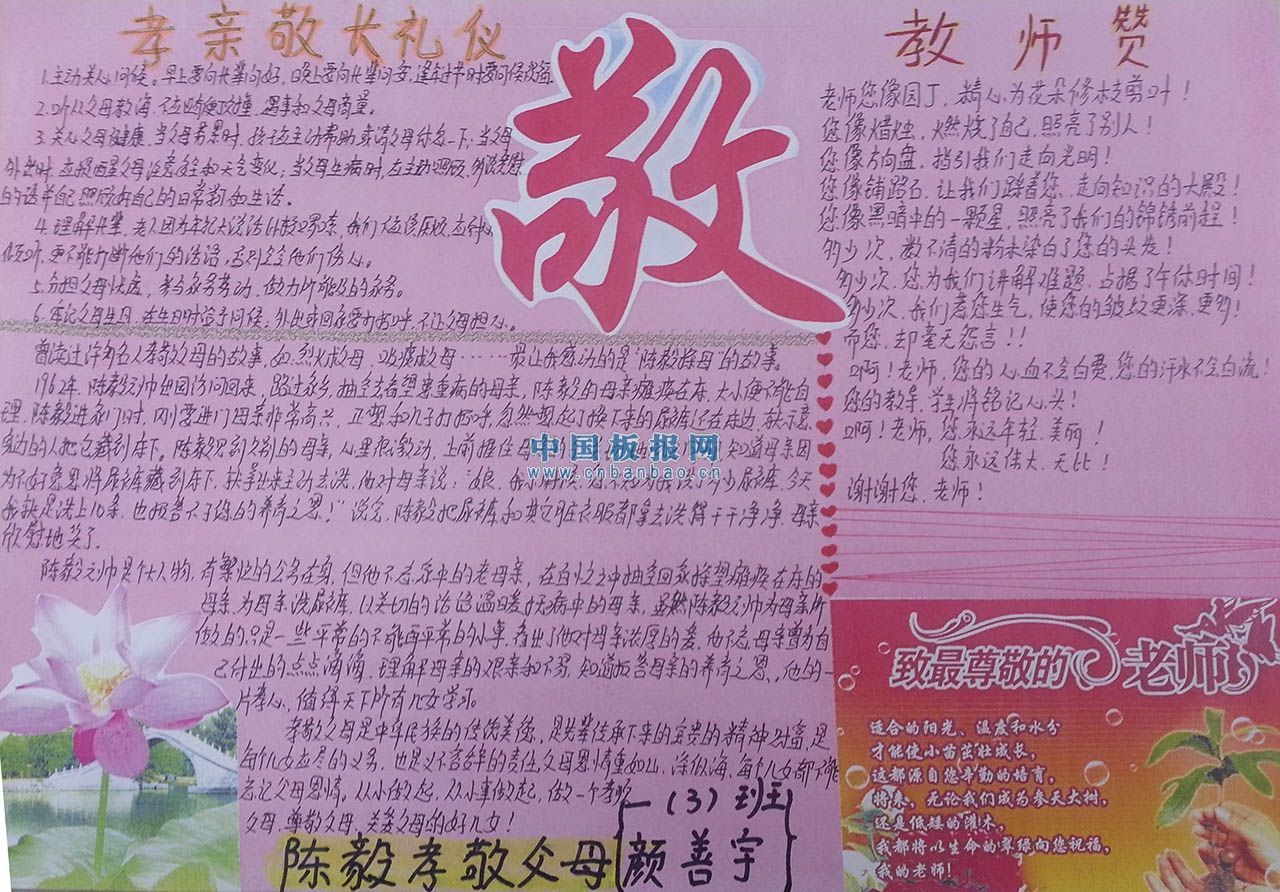 孝亲敬长礼仪
1.主动关心问候。早上要向长辈问好,晚上要向长辈问安,逢年过节时要问候祝福.
2.听从父母教诲,不应顶撞,遇事和父母商量。
3.关心父母健康,当父母劳累时,孩子应主动帮助或请父母休息一下;当父母
外出时,应提醒父母注意安全和天气变化;当父母生病时,应主动照顾,多说关心
的话并自己照顾好自己的日常和生活。
4.理解长辈,老人因为年纪大说话
倾听,更不能打断他们的话语,否则会令他们伤心。
5.分担父母忧虑,参与家务劳动,做力所能及的家务。
6.牢记父母生日,在生日时给予问候,外出或回家要打招呼,不让父母担心。
敬
曾读过许多名人孝敬父母的故事,如:烈火救母、……最让我感动的是"陈毅探母"的故事。
1962年,陈毅元帅出国访问回来,路过家乡,抽空去看望患重病的母亲,陈毅的母亲瘫痪在床,大小便不能自
理,陈毅进家门时,母亲非常高兴,正想和儿子打招呼,忽然想起了换下来的尿裤还在床边,就示意
身边的人把它藏到床下。陈毅见到久别的母亲,心里很激动,上前握住母 知道母亲因
为不好意思将尿裤藏到床下,就拿出来主动去洗,他对母亲说:"娘,我小时候,您不知为我洗了多少尿裤,今天
我就是洗上10条,也报答不了您的养育之恩!"说完,陈毅把尿裤和其它脏衣服都拿去洗得干干净净,母亲
欣慰地笑了.
陈毅元帅是个大人物,有繁忙的公务在身,但他不忘家中的老母亲,在百忙之中抽空回家探望瘫痪在床的
母亲,为母亲洗尿裤,以关切的话语温暖了病中的母亲,虽然陈毅元帅为母亲所
做的只是一些平常的不能再平常的小事,看出了他对母亲浓厚的爱,他不忘母亲曾为自
己付出的点点滴滴,理解母亲的艰辛和不易,知道报答母亲的养育之恩,他的一
片孝心,值得天下所有儿女学习。
孝敬父母是中华民族的传统美德,是先辈传承下来的宝贵的精神财富,是
每个儿女应尽的义务,也是义不容辞的责任,父母恩情重如山,深似海,每个儿女都不能
忘记父母恩情。从小做起,从小事做起,做一个孝敬
父母、尊敬父母、关爱父母的好儿女!
陈毅孝敬父母
一(3)班
颜善宇
教师赞
老师您像园丁,精心为花朵修枝剪叶!
您像蜡烛,燃烧了自己,照亮了别人!
您像方向盘,指引我们走向光明!
您像铺路石,让我们踩着您,走向知识的大殿!
您像黑暗中的一颗星,照亮了我们的锦锈前程!
多少次,数不清的粉末染白了您的头发!
多少次,您为我们讲解难题,占据了午休时间!
多少次,我们惹您生气,使您的皱纹更深,更多!
而您,却毫无怨言!!
啊!老师,您的心血不会白费,您的汗水不会白流!
您的教导,学生将铭记心头!
啊!老师,您永远年轻、美丽!
您永远伟大、无比!
谢谢您,老师!
致最尊敬的老师
适合的阳光、温度和水分
才能使小苗茁壮成长,
这都源自您辛勤的培育,
将来,无论我们成为参天大树,
还是低矮的灌木,
我都将以生命的翠绿向您祝福,
我的老师!
中国板报网
www.cnbanbao.cn